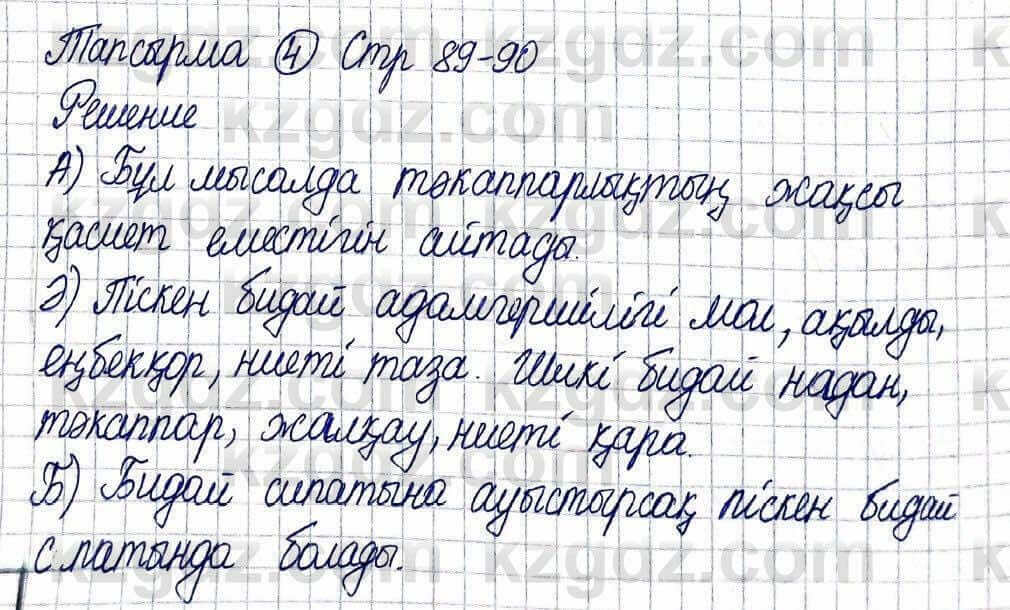 Тапсырма ④ Стр 89-90
Решение
А) Бұл мысалда тәкаппарлықтың жақсы
қасиет еместігін айтады.
Ә) Піскен бидай адамгершілігі мол, ақылды,
еңбекқор, ниеті таза. Шикі бидай надан,
тәкаппар, жалқау, ниеті қара.
Б) Бидай сипатына ауыстырсақ піскен бидай
сипатында болады.